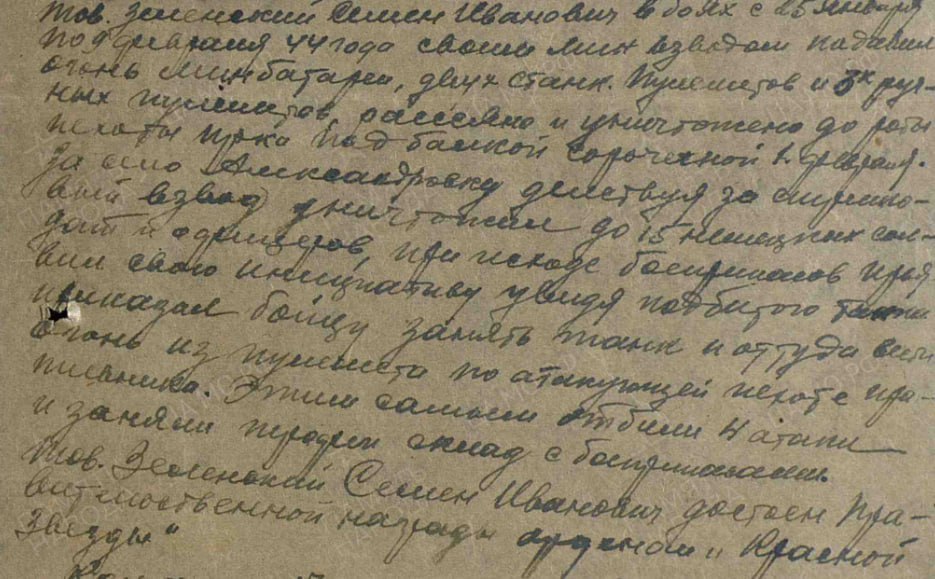 тов. Зеленский Семен Иванович в боях с 25 января
по 9 февраля 44 года своим мин взводом подавил
огонь минбатареи, двух станк. пулеметов и 3х руч-
ных пулеметов, рассеяно и уничтожено до роты
пехоты пр-ка под балкой Сорочечной 2 февраля.
За село Александровку действуя за стрелко-
вый взвод уничтожил до 15 немецких сол-
дат и офицеров, при исходе боеприпасов проя
вил свою инициативу увидя подбитого танка
приказал бойцу занять танк и оттуда вести
огонь из пулемета по атакующей пехоте про-
тивника. Этим самым отбили 4 атаки
и заняли склад с боеприпасами.
Тов. Зеленский Семен Иванович достоен пра-
вительственной награды орденом "Красной
Звезды"